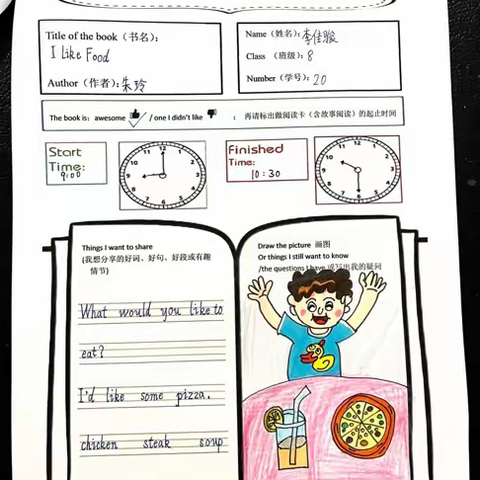 Title of the book (书名):
I Like Food
Author (作者): 朱玲
Name (姓名): 李佳骏
Class (班级): 8
Number(学号): 20
The book is: awesome / one I didn't like : 再请标出做阅读卡(含故事阅读)的起止时间
Start Time: 9:00
12 1 2 3 4 5 6 7 8 9 10 11
Finished Time: 10:30
12 1 2 3 4 5 6 7 8 9 10 11
Things I want to share
(我想分享的好词、好句、好段或有趣
情节)
What would you like to
eat?
I'd like some pizza.
chicken steak soup
Draw the picture 画图
Or things I still want to know
/the questions I have 或写出我的疑问